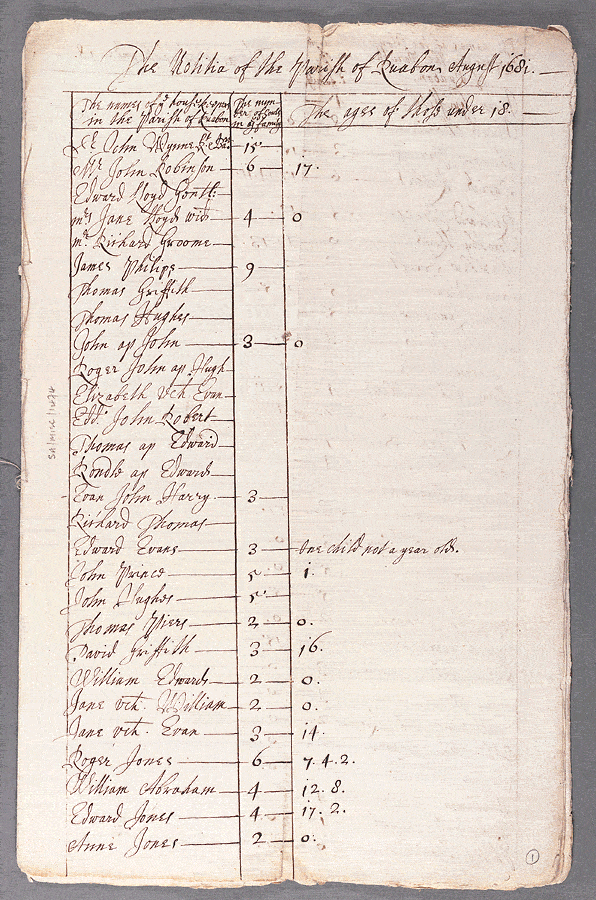 The Notitia of the Parish of Ruabon August 1681.
The names of yᵉ house keepers in the Parish of Ruabon
The num-ber of souls in yᵉ family
The ages of those under 18.
Sʳ John Wynne Kt & Bar. 15
Mʳ John Robinson 6 17.
Edward Lloyd Gentl:
mʳˢ Jane Lloyd wid 4 0
mʳ Richard Groome
James Philips 9
Thomas Griffith
Thomas Hughes
John ap John 3 0
Roger John ap Hugh
Elizabeth vch Evan
Edd: John Robert
Thomas ap Edward
Rondle ap Edward
Evan John Harry 3
Richard Thomas
Edward Evans 3 One child not a year old.
John Prince 5 1.
John Hughes 5
Thomas Piers 2 0.
David Griffith 3 16.
William Edwards 2 0.
Jane vch. William 2 0.
Jane vch. Evan 3 14.
Roger Jones 6 7.4.2.
William Abraham 4 12.8.
Edward Jones 4 17.2.
Anne Jones 2 0.
SA/MISC/1474
1